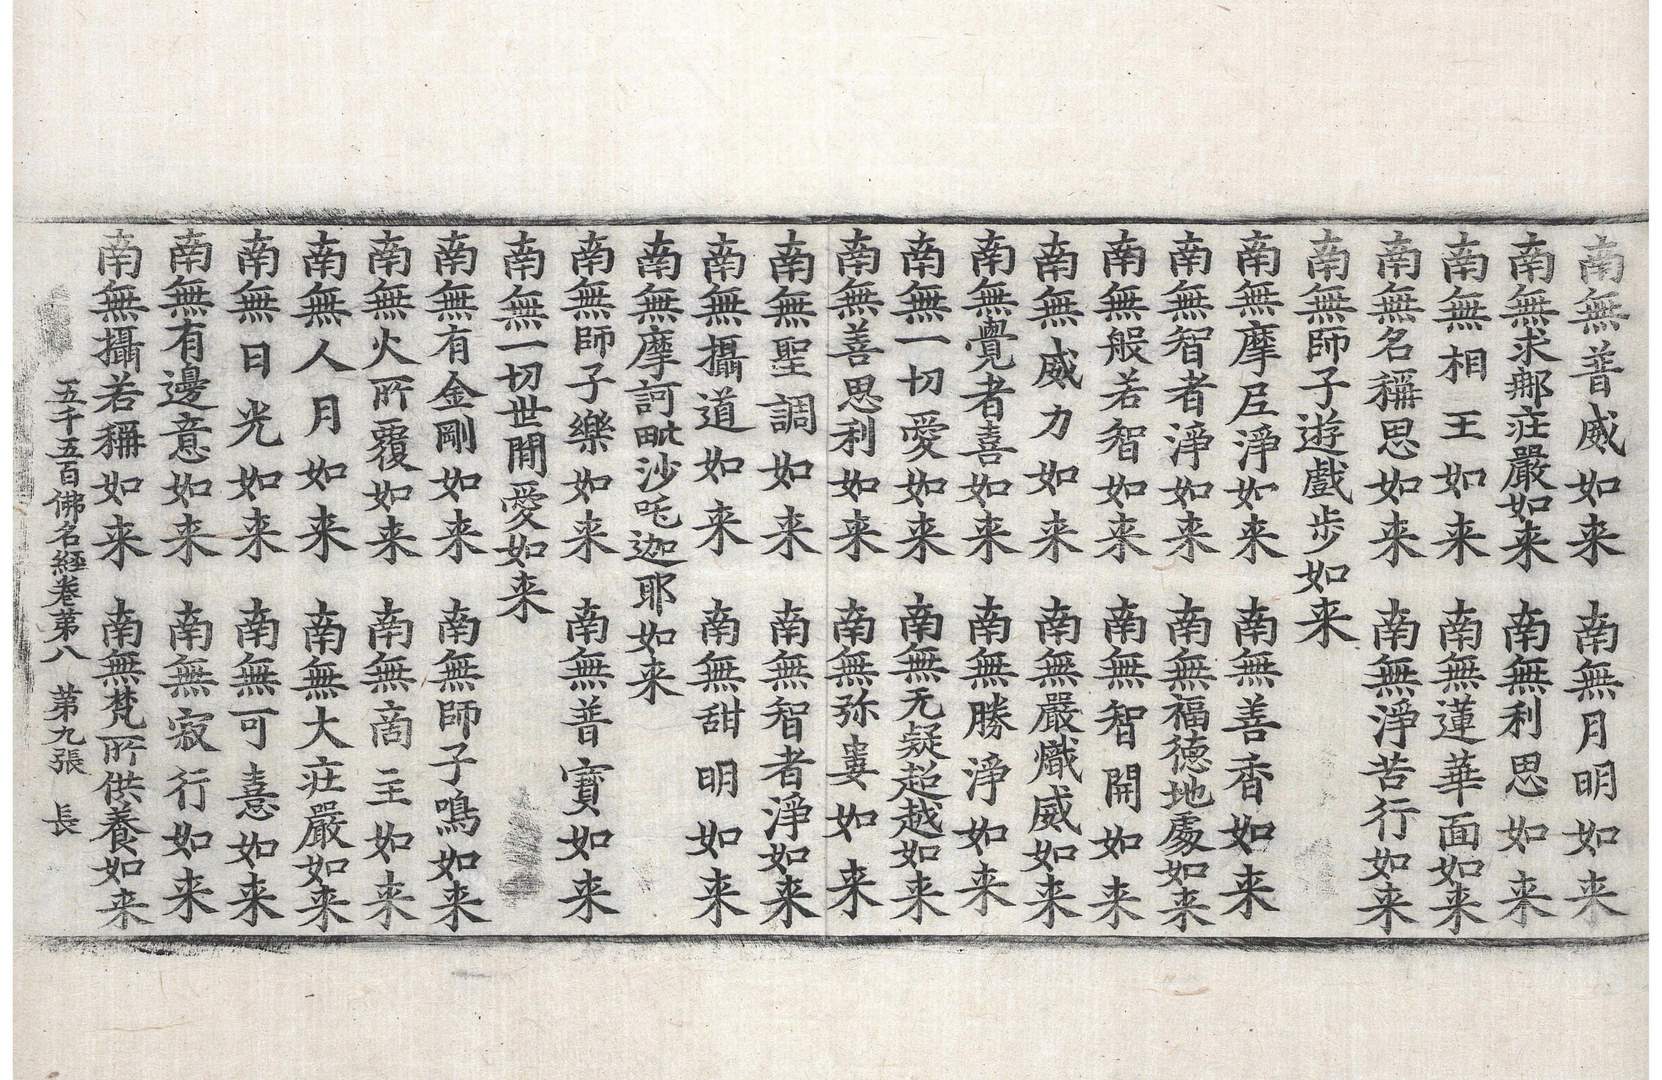 南無普威如来 南無月明如来
南無求那莊嚴如来 南無利思如来
南無相王如来 南無蓮華面如来
南無名稱思如来 南無淨苦行如来
南無師子遊戲步如来
南無摩尼淨如来 南無善香如来
南無智者淨如来 南無福德地處如来
南無般若智如来 南無智開如来
南無威力如来 南無嚴熾威如来
南無覺者喜如来 南無勝淨如来
南無一切愛如来 南無无疑超越如来
南無善思利如来 南無弥婁如来
南無聖調如来 南無智者淨如来
南無攝道如来 南無甜明如来
南無摩訶毗沙吒迦耶如来
南無師子樂如来 南無普寶如来
南無一切世閒愛如来
南無有金剛如来 南無師子鳴如来
南無火所覆如来 南無商主如来
南無人月如来 南無大莊嚴如来
南無日光如来 南無可憙如来
南無有邊意如来 南無寂行如来
南無攝若稱如来 南無梵所供養如来
五千五百佛名經卷第八 第九張 長